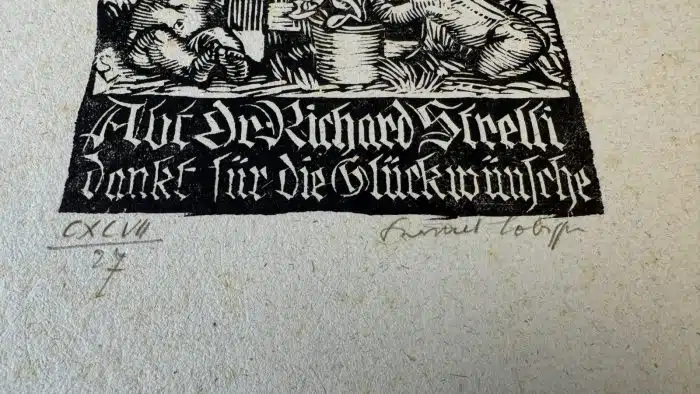 Abt Dr Richard Strelli
dankt für die Glückwünsche
CXCVII
27